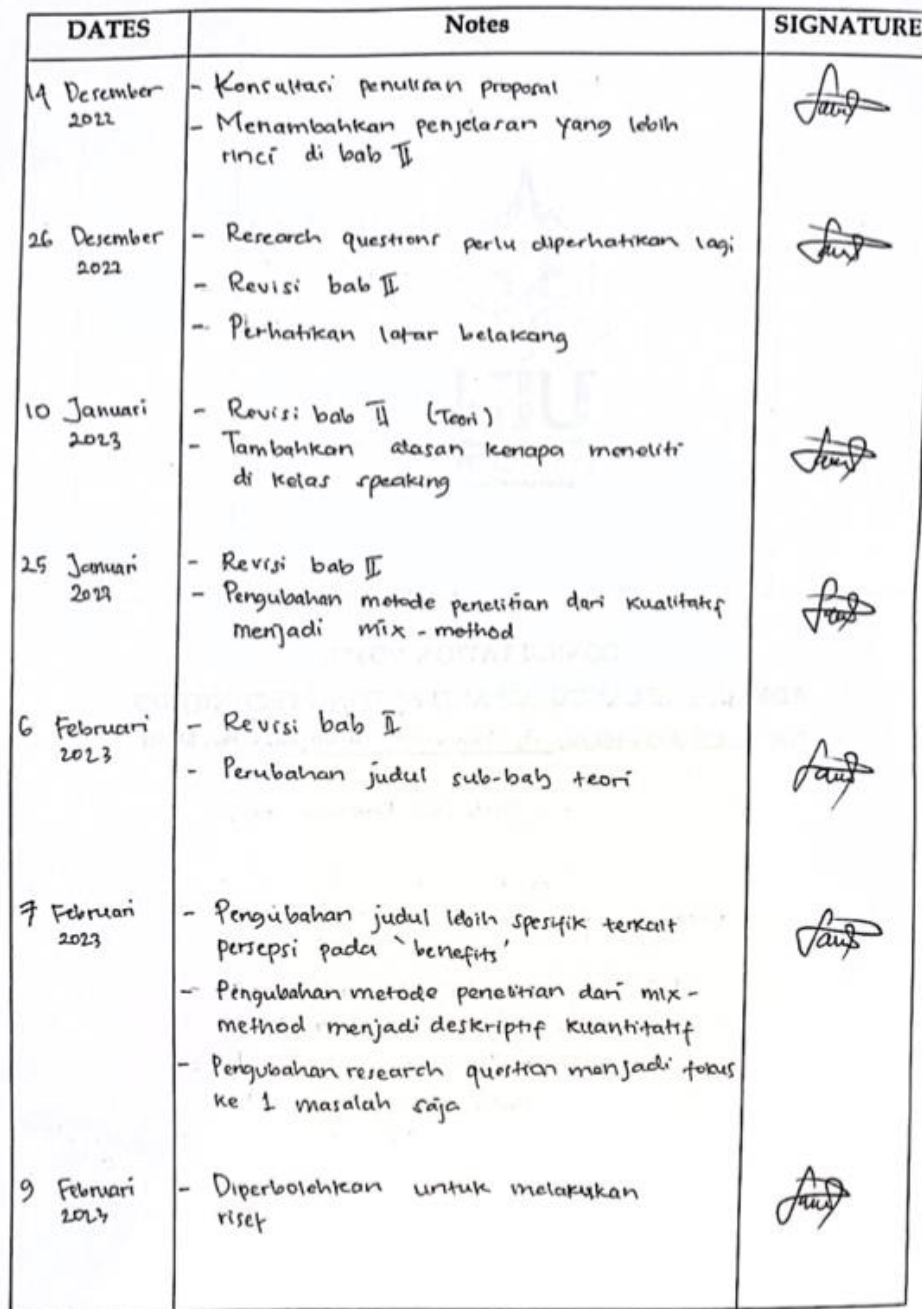 DATES Notes SIGNATURE
14 Desember - Konsultasi penulisan proposal
2022 - Menambahkan penjelasan yang lebih
rinci di bab II
26 Desember - Research questions perlu diperhatikan lagi
2022
- Revisi bab II
- Perhatikan latar belakang
10 Januari - Revisi bab II (Teori)
2023 - Tambahkan alasan kenapa meneliti
di kelas speaking
25 Januari - Revisi bab II
2023 - Pengubahan metode penelitian dari kualitatif
menjadi mix-method
6 Februari - Revisi bab II
2023
- Perubahan judul sub-bab teori
7 Februari - Pengubahan judul lebih spesifik terkait
2023 persepsi pada `benefits'
- Pengubahan metode penelitian dari mix-
method menjadi deskriptif kuantitatif
- Pengubahan research question menjadi fokus
ke 1 masalah saja
9 Februari - Diperbolehkan untuk melakukan
2023 riset